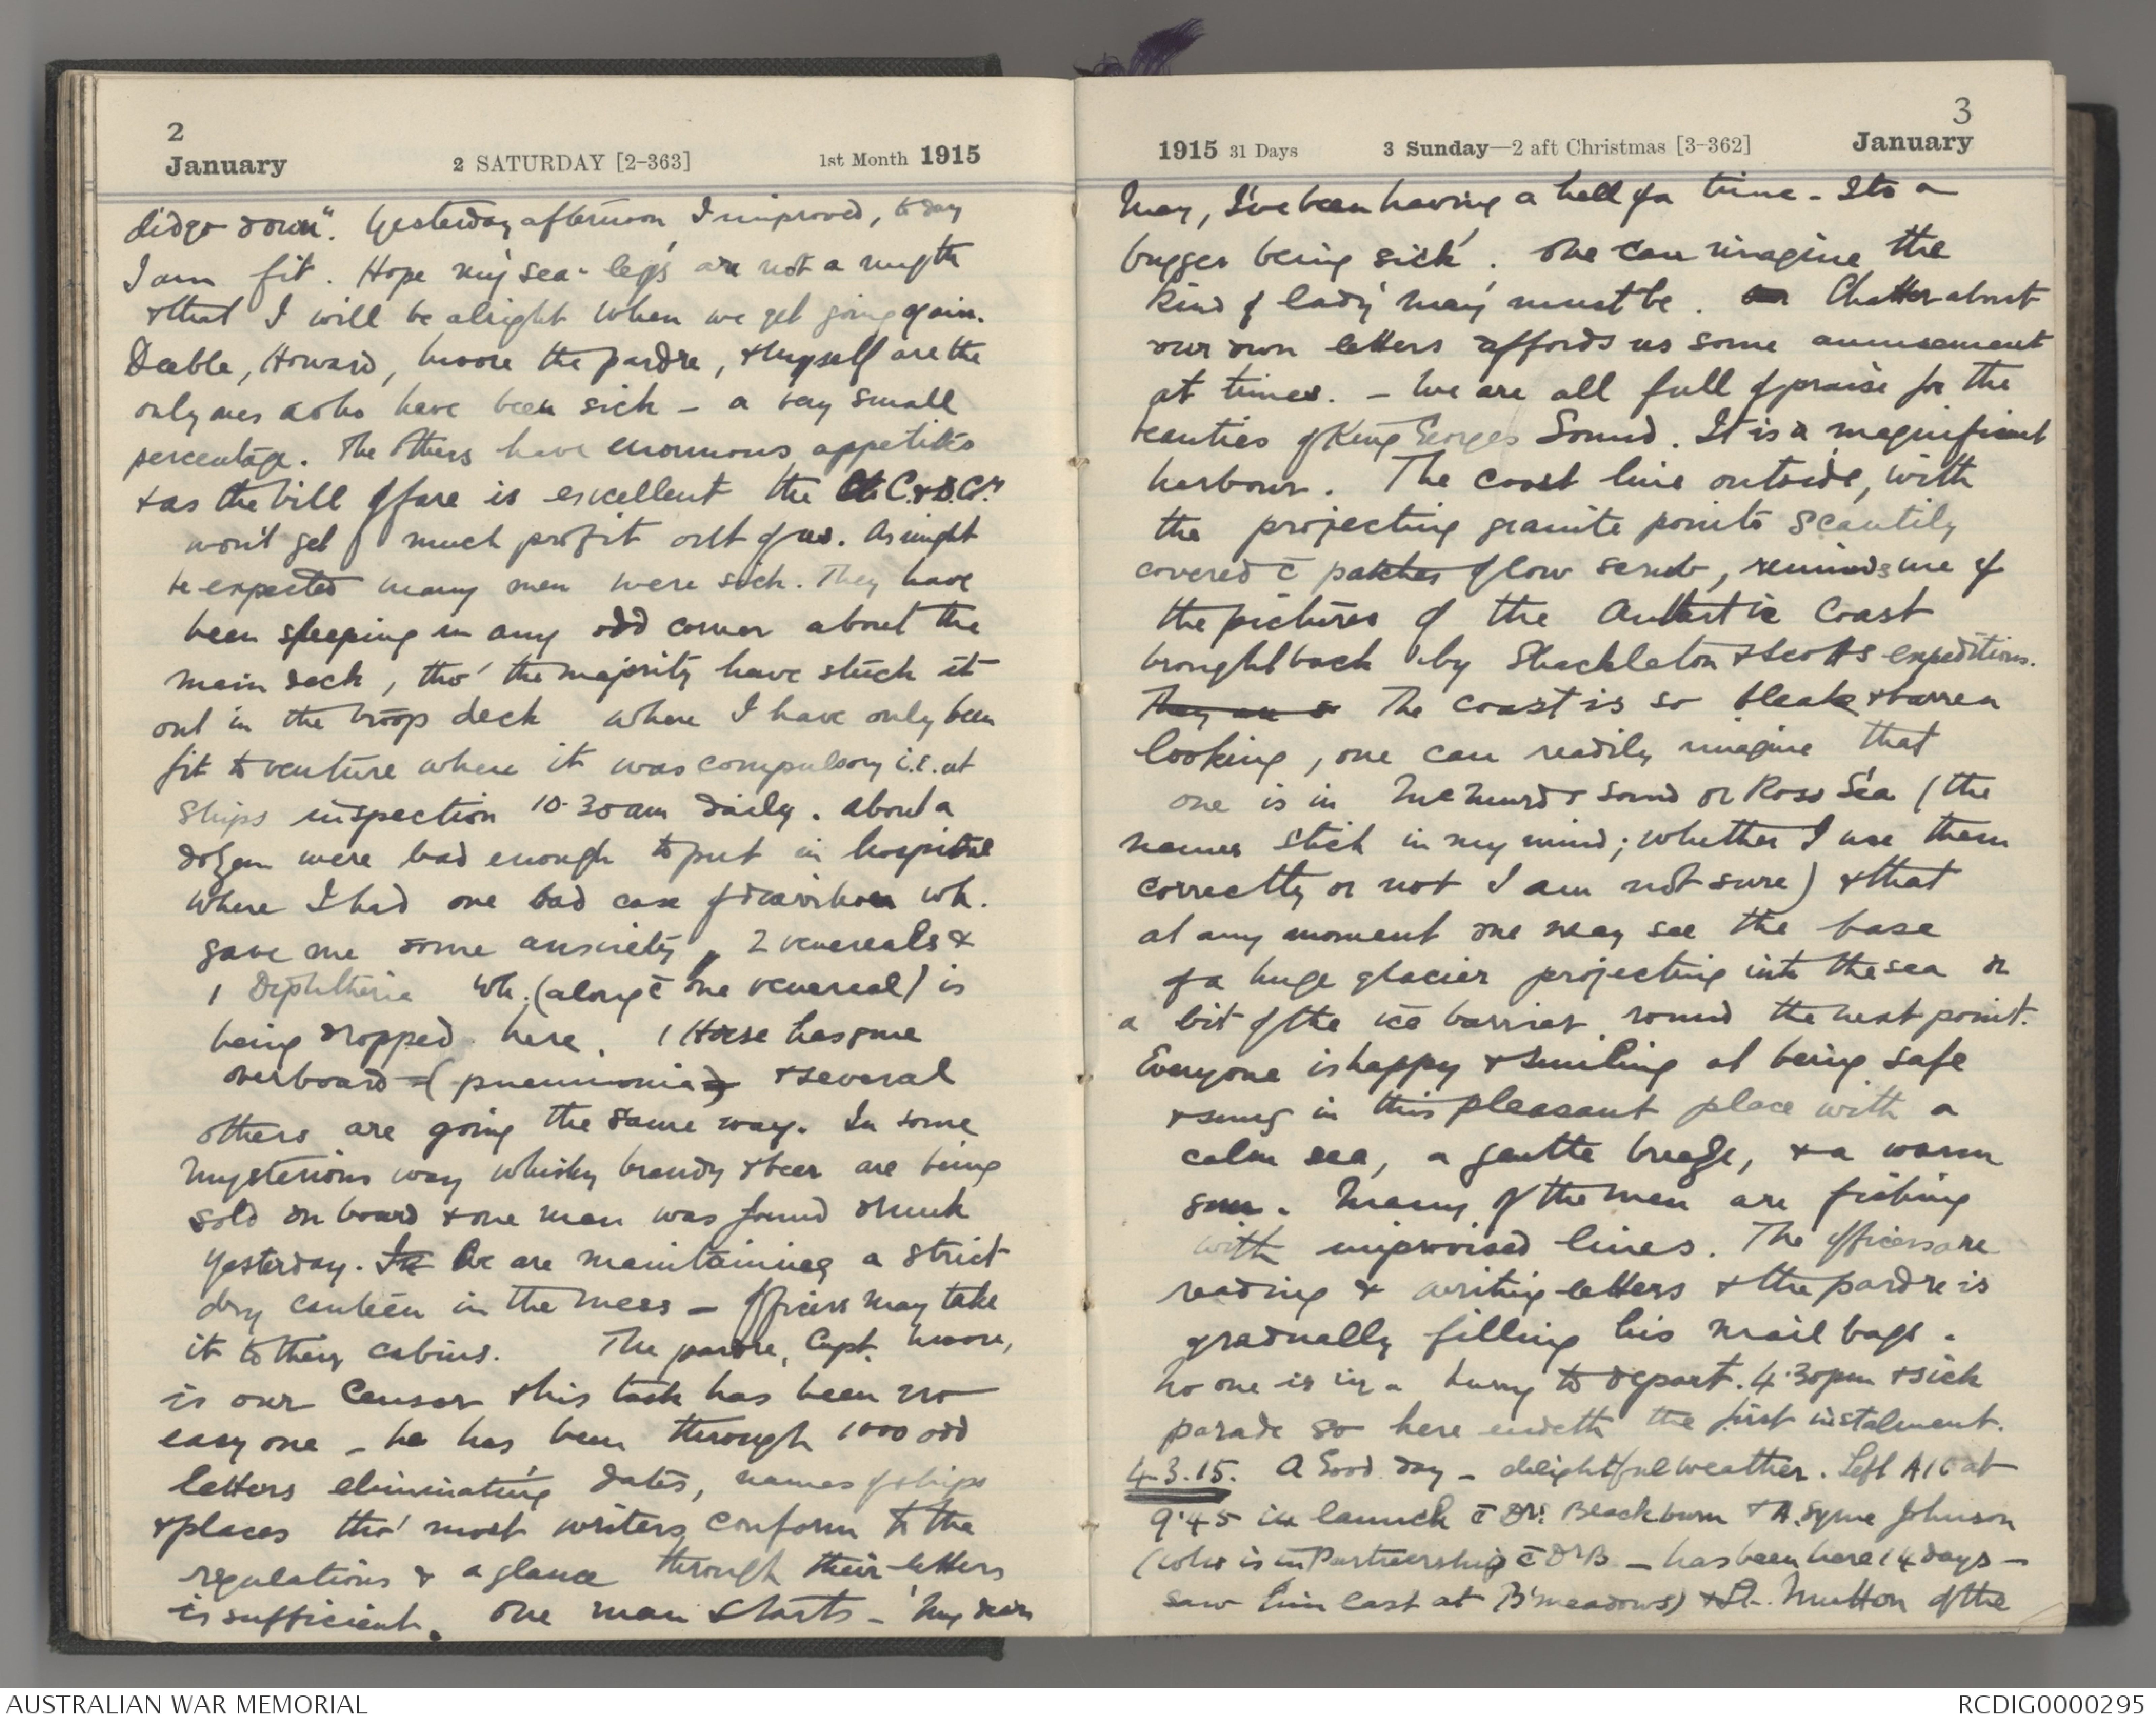 2
January
2 SATURDAY [2-363]
1st Month 1915
didgo down". Yesterday afternoon I improved, today
I am fit. Hope my 'sea-legs' are not a myth
& that I will be alright when we get going again.
Deeble, Howard, Moore the pardre, & myself are the
only ones who have been sick - a very small
percentage. The others have enormous appetites
& as the bill of fare is excellent the C.&D.Coy
won't get much profit out of us. As might
be expected many men were sick. They have
been sleeping in any odd corner about the
main deck, tho' the majority have stuck it
out in the troop deck where I have only been
fit to venture where it was compulsory i.e. at
Ships inspection 10.30am daily. About a
dozen were bad enough to put in hospital
where I had one bad case of diarrhoea wh.
gave me some anxiety, 2 venereals &
1 Diphtheria wh. (along c̄ one venereal) is
being dropped here. 1 Horse has gone
overboard (pneumonia) & several
others are going the same way. In some
mysterious way whisky brandy & beer are being
sold on board & one man was found drunk
yesterday. In We are maintaining a strict
dry canteen in the mess - officers may take
it to their cabins. The pardre, Capt. Moore,
is our Censor & his task has been no
easy one - he has been through 1000 odd
letters eliminating dates, names of ships
& places tho' most writers conform to the
regulations & a glance through their letters
is sufficient. One man starts - 'My dear
3
1915 31 Days
3 Sunday—2 aft Christmas [3-362]
January
May, I've been having a hell of a time - Its a
bugger being sick'. One can imagine the
kind of lady 'may' must be. Chatter about
our own letters affords us some amusement
at times. - We are all full of praise for the
beauties of King Georges Sound. It is a magnificent
harbour. The coast line outside, with
the projecting granite points scantily
covered c̄ patches of low scrub, reminds me of
the pictures of the Antartic Coast
brought back by Shackleton & Scotts expeditions.
They are so The coast is so bleak & barren
looking, one can readily imagine that
one is in McMurdo Sound or Ross Sea (the
names stick in my mind; whether I use them
correctly or not I am not sure) & that
at any moment one may see the base
of a huge glacier projecting into the sea or
a bit of the ice barrier round the next point.
Everyone is happy & smiling at being safe
& snug in this pleasant place with a
calm sea, a gentle breeze, & a warm
sun. Many of the men are fishing
with improvised lines. The officers are
reading & writing letters & the pardre is
gradually filling his mail bags.
No one is in a hurry to depart. 4.30pm & sick
parade so here endeth the first instalment.
4.3.15. A Good day - delightful weather. Left A16 at
9.45 in launch c̄ Dr. Blackburn & A. Syme Johnson
(who is in Partnership c̄ Dr B - has been here 14 days -
saw him last at B'meadows) & Lt. Mutton of the
AUSTRALIAN WAR MEMORIAL
RCDIG0000295